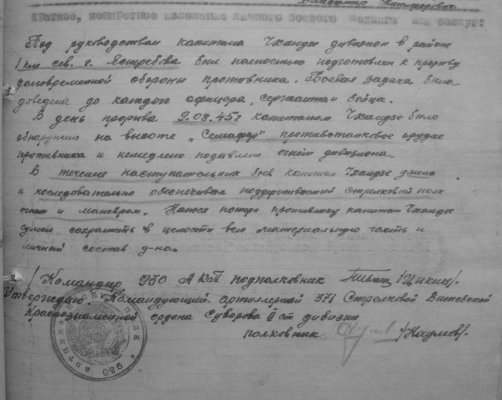 Владимир
Краткое, конкретное изложение личного боевого подвига или заслуг:
Под руководством капитана Чхаидзе дивизион в районе
1 км сев. г. Ястребова был полностью подготовлен к прорыву
долговременной обороны противника. Боевая задача была
доведена до каждого офицера, сержанта и бойца.
В день прорыва 9.08.45г капитаном Чхаидзе было
обнаружено на высоте „Семафор" противотанковое орудие
противника и немедлено подавлено огнём дивизиона.
В течение наступательных боев капитан Чхаидзе умело
и последовательно обеспечивал поддерживаемый стрелковый полк
огнем и маневром. Нанося потери противнику капитан Чхаидзе
сумел сохранить в целости всю материальную часть и
личный состав д-на.
Командир 930 АКП подполковник /Цикин/.
Утверждаю: Командующий артиллерией 371 Стрелковой Витебской
Краснознаменной ордена Суворова II ст дивизии
полковник /Наумов/.